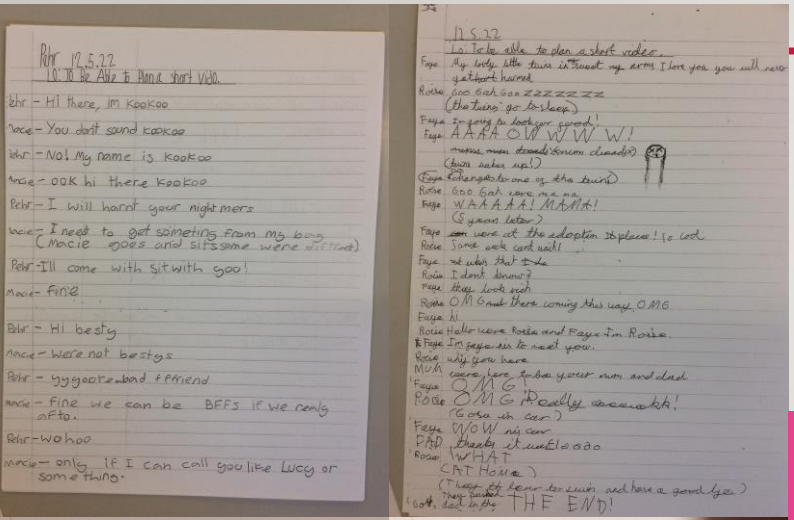 Pehr 12.5.22
LO: To Be Able to Plan a short vido.
Pehr - Hi there, im KooKoo
Macie - You dont sound kookoo
Pehr - No! My name is kookoo
Macie - ook hi there kookoo
Pehr - I will harnt your night mers
Macie - I need to get someting from my bag
(Macie goes and sits some were diffrent)
Pehr - Ill come with sit with you!
Macie - fine
Pehr - Hi besty
Macie - were not bestys
Pehr - bad
Macie - fine we can be BFFs if we realy
afto.
Pehr - wohoo
Macie - only if I can call you like Lucy or
something.
12.5.22
Lo: To be able to plan a short video.
Faye My lovly little twins in my arms I love you you will never
get harmed
Rosie Goo Gah Goo ZZZZZZZ
(the twins go to sleep)
Faye Im going to look for good!
Faye AAAA OW W W W!
(twin wakes up!)
(Faye changes to one of the twins)
Rosie Goo Gah were ma na
Faye WAAAAA! MAMA!
(5 years later)
Faye were at the adoption place! so cool
Rosie Same
Faye whos that
Rosie I dont know?
Faye they look rich
Rosie OMG and there coming this way OMG
Faye hi
Rosie Hallo were Rosie and Faye Im Rosie.
Faye Im faye nis to meet you.
Rosie why you here
MUM were here to be your mum and dad
Faye OMG!
Rosie OMG Really
(Gose in car)
Faye WOW nis car
DAD thanks it
Rosie WHAT
(AT Home)
(They to swim and have a good)
THE END!